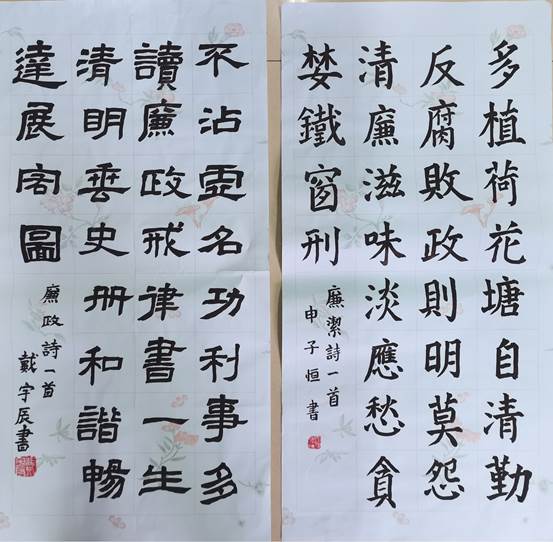 多植荷花塘自清勤
反腐敗政則明莫怨
清廉滋味淡應愁貪
婪鐵窗刑
廉潔詩一首
申子恒書
不沾虛名功利事多
讀廉政戒律書一生
清明垂史册和諧暢
達展宏圖
廉政詩一首
戴宇辰書